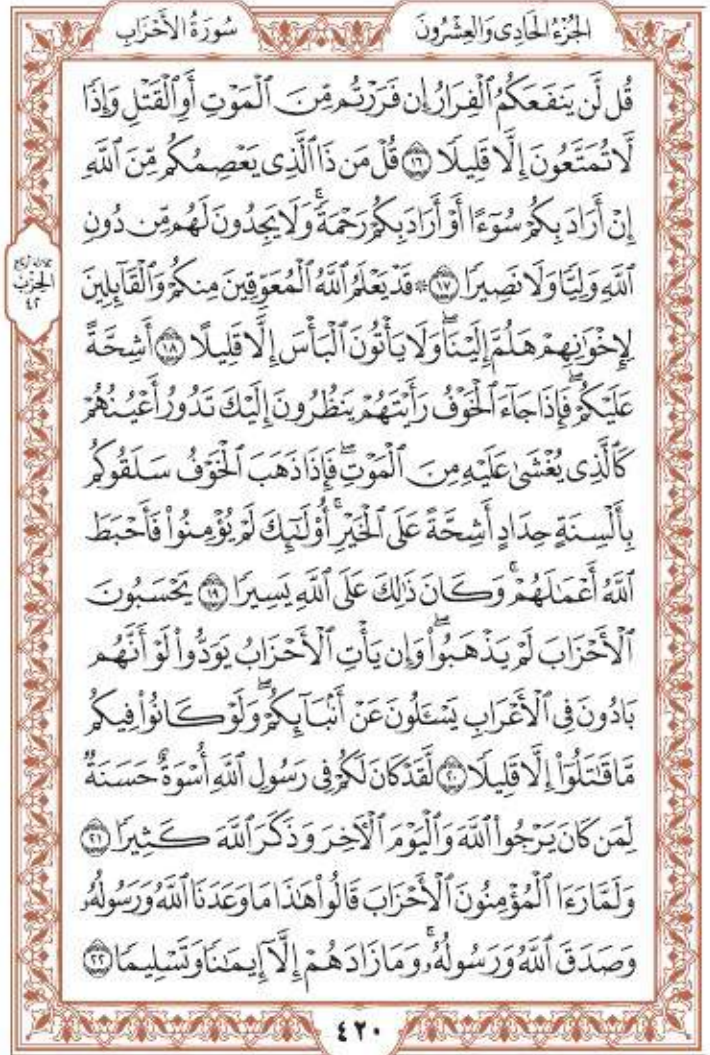 سُورَةُ الأَحْزَابِ
الجُزْءُ الحَادِى وَالعِشْرُونَ
قُل لَّن يَنفَعَكُمُ ٱلْفِرَارُ إِن فَرَرْتُم مِّنَ ٱلْمَوْتِ أَوِ ٱلْقَتْلِ وَإِذًا
لَّا تُمَتَّعُونَ إِلَّا قَلِيلًا ١٦ قُلْ مَن ذَا ٱلَّذِى يَعْصِمُكُم مِّنَ ٱللَّهِ
إِنْ أَرَادَ بِكُمْ سُوٓءًا أَوْ أَرَادَ بِكُمْ رَحْمَةً ۚ وَلَا يَجِدُونَ لَهُم مِّن دُونِ
ٱللَّهِ وَلِيًّا وَلَا نَصِيرًا ١٧ ۞ قَدْ يَعْلَمُ ٱللَّهُ ٱلْمُعَوِّقِينَ مِنكُمْ وَٱلْقَآئِلِينَ
لِإِخْوَٰنِهِمْ هَلُمَّ إِلَيْنَا ۖ وَلَا يَأْتُونَ ٱلْبَأْسَ إِلَّا قَلِيلًا ١٨ أَشِحَّةً
عَلَيْكُمْ ۖ فَإِذَا جَآءَ ٱلْخَوْفُ رَأَيْتَهُمْ يَنظُرُونَ إِلَيْكَ تَدُورُ أَعْيُنُهُمْ
كَٱلَّذِى يُغْشَىٰ عَلَيْهِ مِنَ ٱلْمَوْتِ ۖ فَإِذَا ذَهَبَ ٱلْخَوْفُ سَلَقُوكُم
بِأَلْسِنَةٍ حِدَادٍ أَشِحَّةً عَلَى ٱلْخَيْرِ ۚ أُو۟لَٰٓئِكَ لَمْ يُؤْمِنُوا۟ فَأَحْبَطَ
ٱللَّهُ أَعْمَٰلَهُمْ ۚ وَكَانَ ذَٰلِكَ عَلَى ٱللَّهِ يَسِيرًا ١٩ يَحْسَبُونَ
ٱلْأَحْزَابَ لَمْ يَذْهَبُوا۟ ۖ وَإِن يَأْتِ ٱلْأَحْزَابُ يَوَدُّوا۟ لَوْ أَنَّهُم
بَادُونَ فِى ٱلْأَعْرَابِ يَسْـَٔلُونَ عَنْ أَنۢبَآئِكُمْ ۖ وَلَوْ كَانُوا۟ فِيكُم
مَّا قَٰتَلُوٓا۟ إِلَّا قَلِيلًا ٢٠ لَّقَدْ كَانَ لَكُمْ فِى رَسُولِ ٱللَّهِ أُسْوَةٌ حَسَنَةٌ
لِّمَن كَانَ يَرْجُوا۟ ٱللَّهَ وَٱلْيَوْمَ ٱلْءَاخِرَ وَذَكَرَ ٱللَّهَ كَثِيرًا ٢١
وَلَمَّا رَءَا ٱلْمُؤْمِنُونَ ٱلْأَحْزَابَ قَالُوا۟ هَٰذَا مَا وَعَدَنَا ٱللَّهُ وَرَسُولُهُۥ
وَصَدَقَ ٱللَّهُ وَرَسُولُهُۥ ۚ وَمَا زَادَهُمْ إِلَّآ إِيمَٰنًا وَتَسْلِيمًا ٢٢
الحِزْب
٤٢
٤٢٠